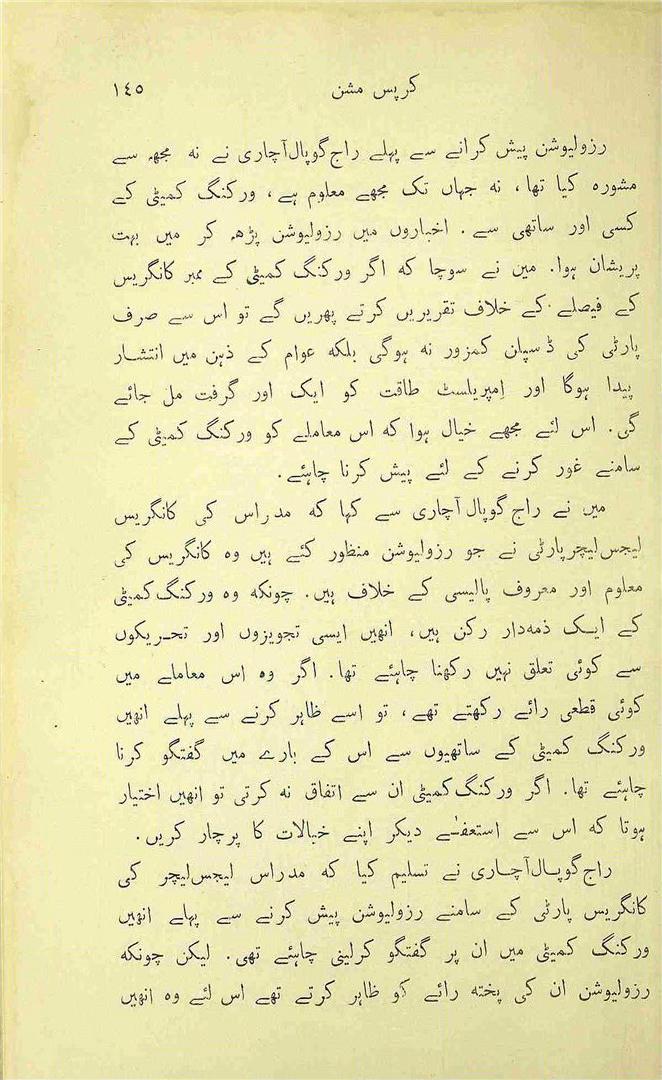 کرپس مشن ١٤٥
رزولیوشن پیش کرانے سے پہلے راج گوپال‌آچاری نے نہ مجھ سے
مشورہ کیا تھا، نہ جہاں تک مجھے معلوم ہے، ورکنگ کمیٹی کے
کسی اور ساتھی سے۔ اخباروں میں رزولیوشن پڑھ کر میں بہت
پریشان ہوا۔ مین نے سوچا کہ اگر ورکنگ کمیٹی کے ممبر کانگریس
کے فیصلے کے خلاف تقریریں کرتے پھریں گے تو اس سے صرف
پارٹی کی ڈسپلن کمزور نہ ہوگی بلکہ عوام کے ذہن میں انتشار
پیدا ہوگا اور اِمپریلسٹ طاقت کو ایک اور گرفت مل جائے
گی۔ اس لئے مجھے خیال ہوا کہ اس معاملے کو ورکنگ کمیٹی کے
سامنے غور کرنے کے لئے پیش کرنا چاہئے۔
میں نے راج گوپال آچاری سے کہا کہ مدراس کی کانگریس
لیجس‌لیچر پارٹی نے جو رزولیوشن منظور کئے ہیں وہ کانگریس کی
معلوم اور معروف پالیسی کے خلاف ہیں۔ چونکہ وہ ورکنگ کمیٹی
کے ایک ذمہ‌دار رکن ہیں، انھیں ایسی تجویزوں اور تحریکوں
سے کوئی تعلق نہیں رکھنا چاہئے تھا۔ اگر وہ اس معاملے میں
کوئی قطعی رائے رکھتے تھے، تو اسے ظاہر کرنے سے پہلے انھیں
ورکنگ کمیٹی کے ساتھیوں سے اس کے بارے میں گفتگو کرنا
چاہئے تھا۔ اگر ورکنگ کمیٹی ان سے اتفاق نہ کرتی تو انھیں اختیار
ہوتا کہ اس سے استعفےٰ دیکر اپنے خیالات کا پرچار کریں۔
راج گوپال‌آچاری نے تسلیم کیا کہ مدراس لیجس‌لیچر کی
کانگریس پارٹی کے سامنے رزولیوشن پیش کرنے سے پہلے انھیں
ورکنگ کمیٹی میں ان پر گفتگو کرلینی چاہئے تھی۔ لیکن چونکہ
رزولیوشن ان کی پختہ رائے کو ظاہر کرتے تھے اس لئے وہ انھیں